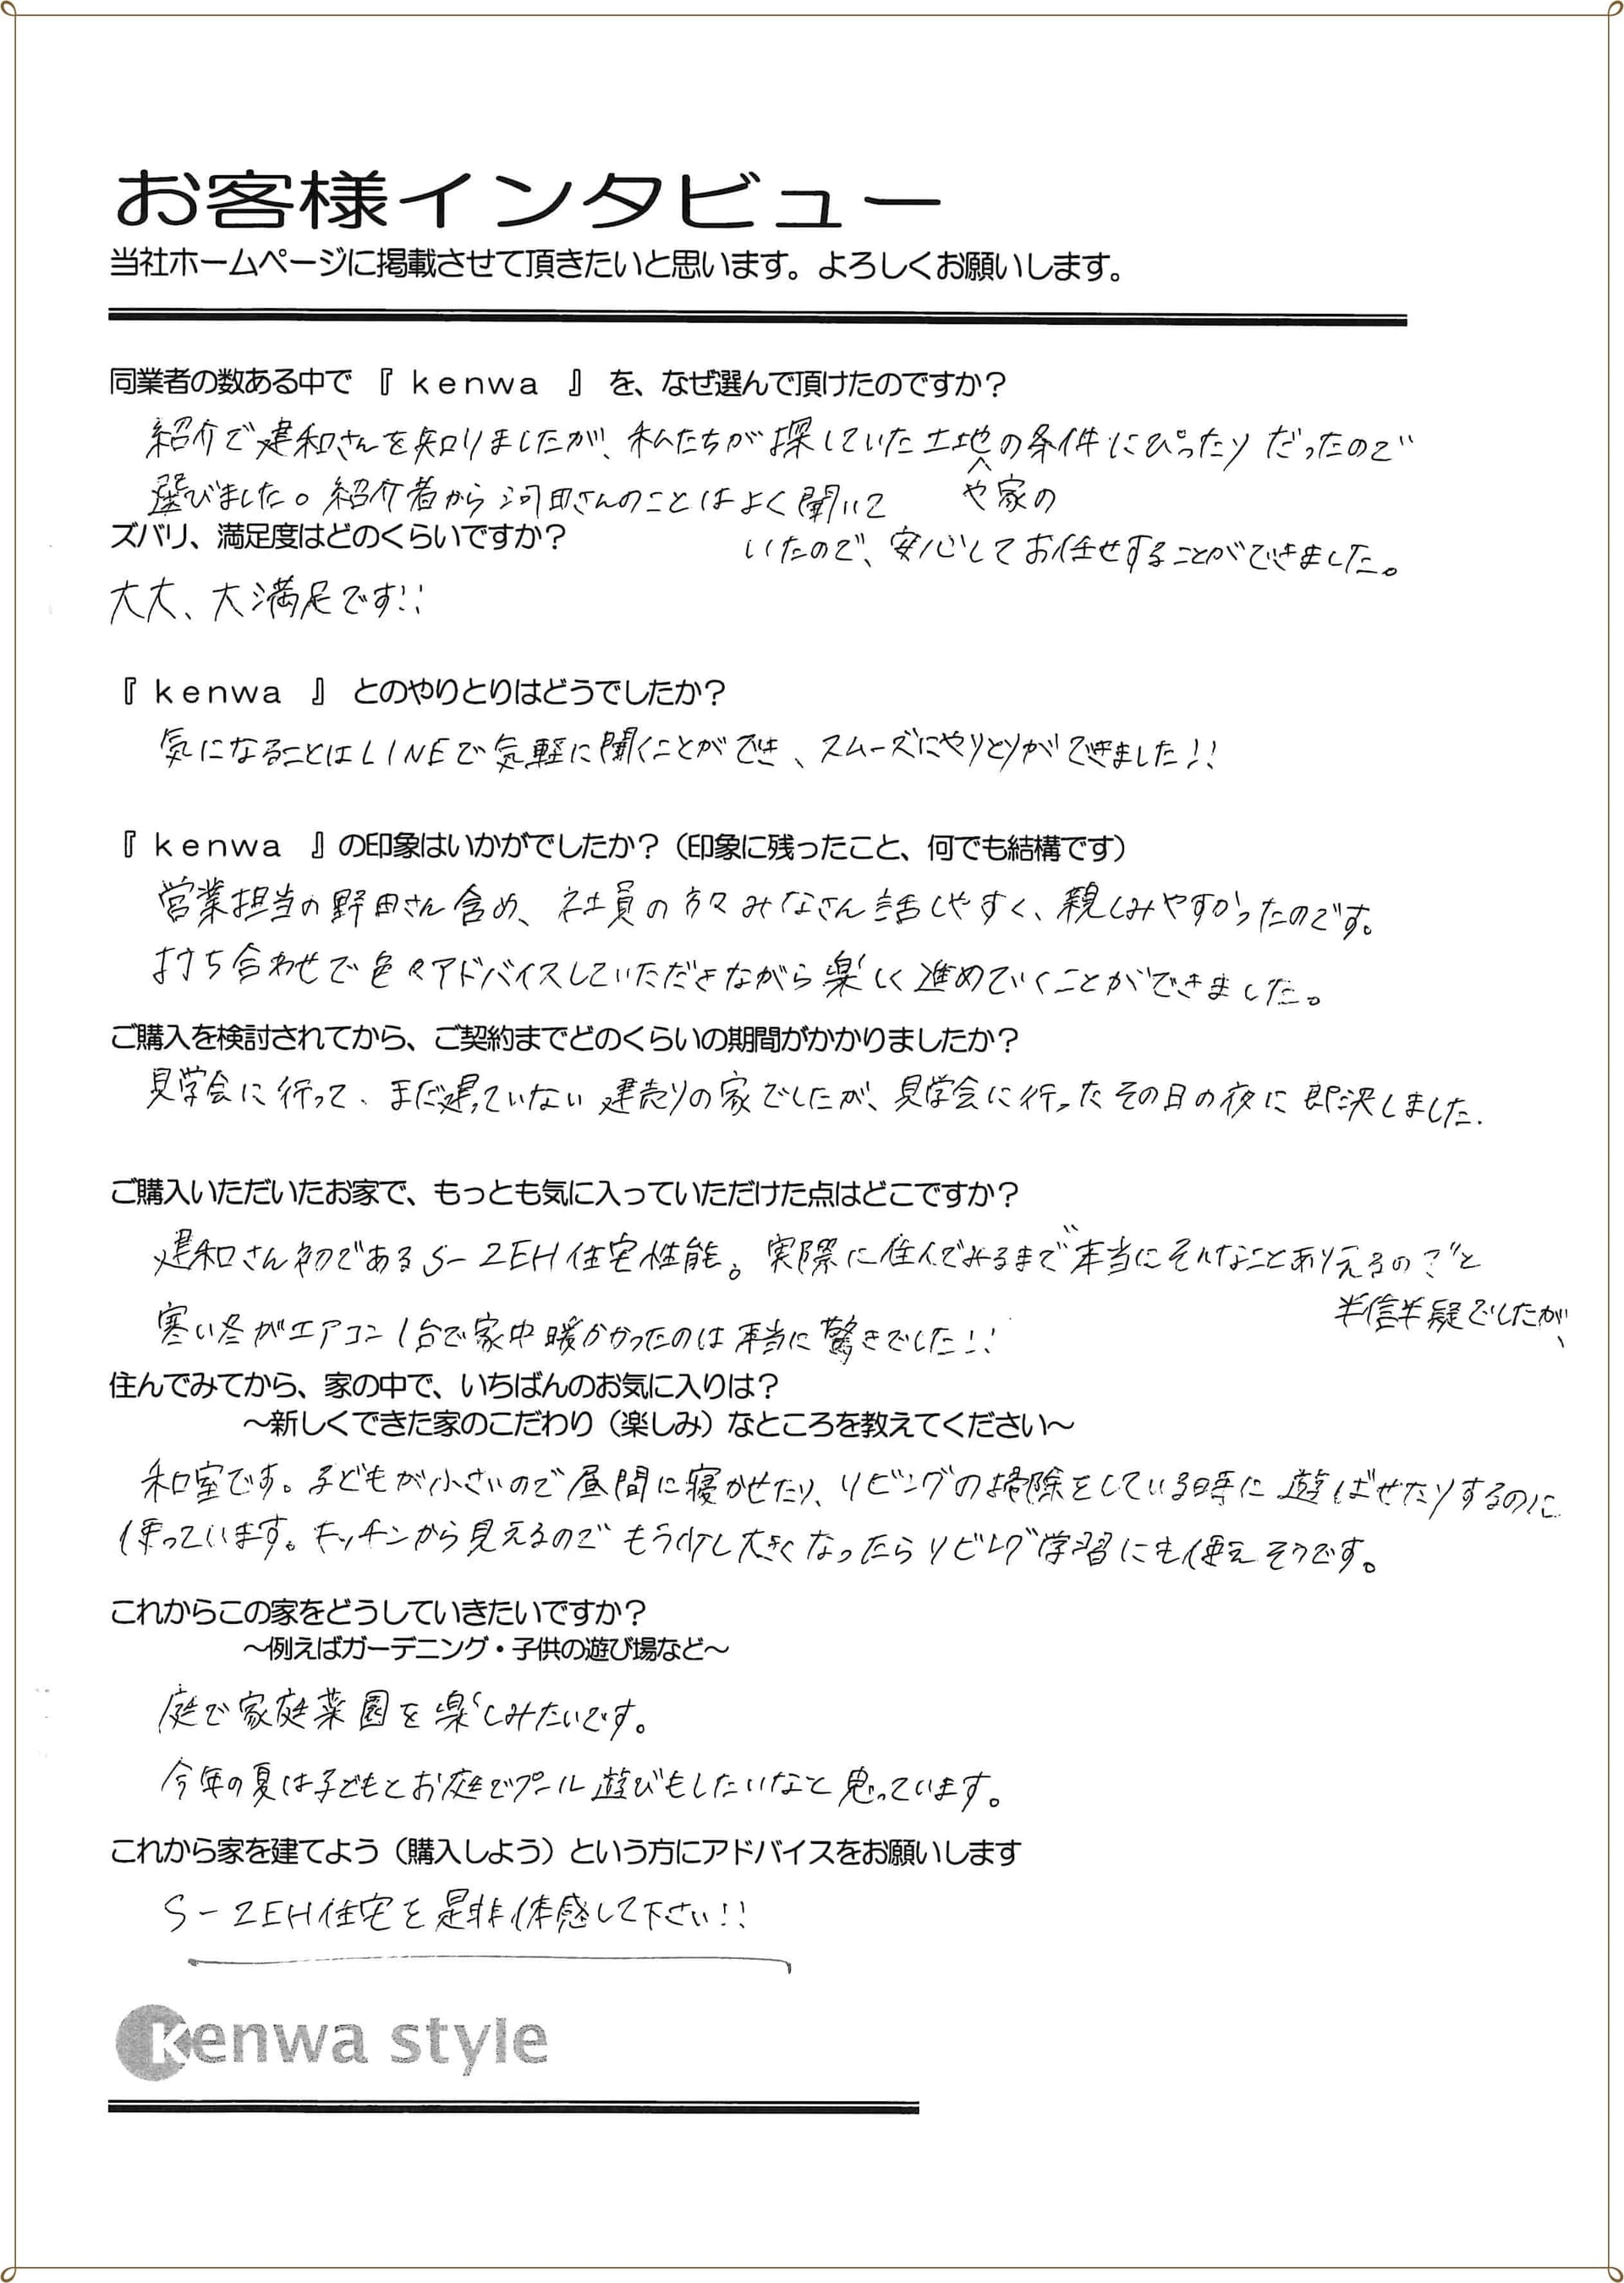 お客様インタビュー
当社ホームページに掲載させて頂きたいと思います。よろしくお願いします。
同業者の数ある中で 『 kenwa 』 を、なぜ選んで頂けたのですか？
紹介で建和さんを知りましたが、私たちが探していた土地の条件にぴったりだったので
や家の
選びました。紹介者から河田さんのことはよく聞いて
いたので、安心してお任せすることができました。
ズバリ、満足度はどのくらいですか？
大大、大満足です!!
『 kenwa 』 とのやりとりはどうでしたか？
気になることはLINEで気軽に聞くことができ、スムーズにやりとりができました!!
『 kenwa 』の印象はいかがでしたか？（印象に残ったこと、何でも結構です）
営業担当の野田さん含め、社員の方々みなさん話しやすく、親しみやすかったのです。
打ち合わせで色々アドバイスしていただきながら楽しく進めていくことができました。
ご購入を検討されてから、ご契約までどのくらいの期間がかかりましたか？
見学会に行って、まだ建っていない建売りの家でしたが、見学会に行ったその日の夜に即決しました.
ご購入いただいたお家で、もっとも気に入っていただけた点はどこですか？
建和さん初であるS-ZEH住宅性能。実際に住んでみるまで"本当にそんなことありえるの?"と
半信半疑でしたが、
寒い冬がエアコン1台で家中暖かかったのは本当に驚きでした!!
住んでみてから、家の中で、いちばんのお気に入りは？
～新しくできた家のこだわり（楽しみ）なところを教えてください～
和室です。子どもが小さいので昼間に寝かせたり、リビングの掃除をしている時に遊ばせたりするのに
使っています。キッチンから見えるのでもう少し大きくなったらリビング学習にも使えそうです。
これからこの家をどうしていきたいですか？
～例えばガーデニング・子供の遊び場など～
庭で家庭菜園を楽しみたいです。
今年の夏は子どもとお庭でプール遊びもしたいなと思っています。
これから家を建てよう（購入しよう）という方にアドバイスをお願いします
S-ZEH住宅を是非体感して下さい!!
kenwa style